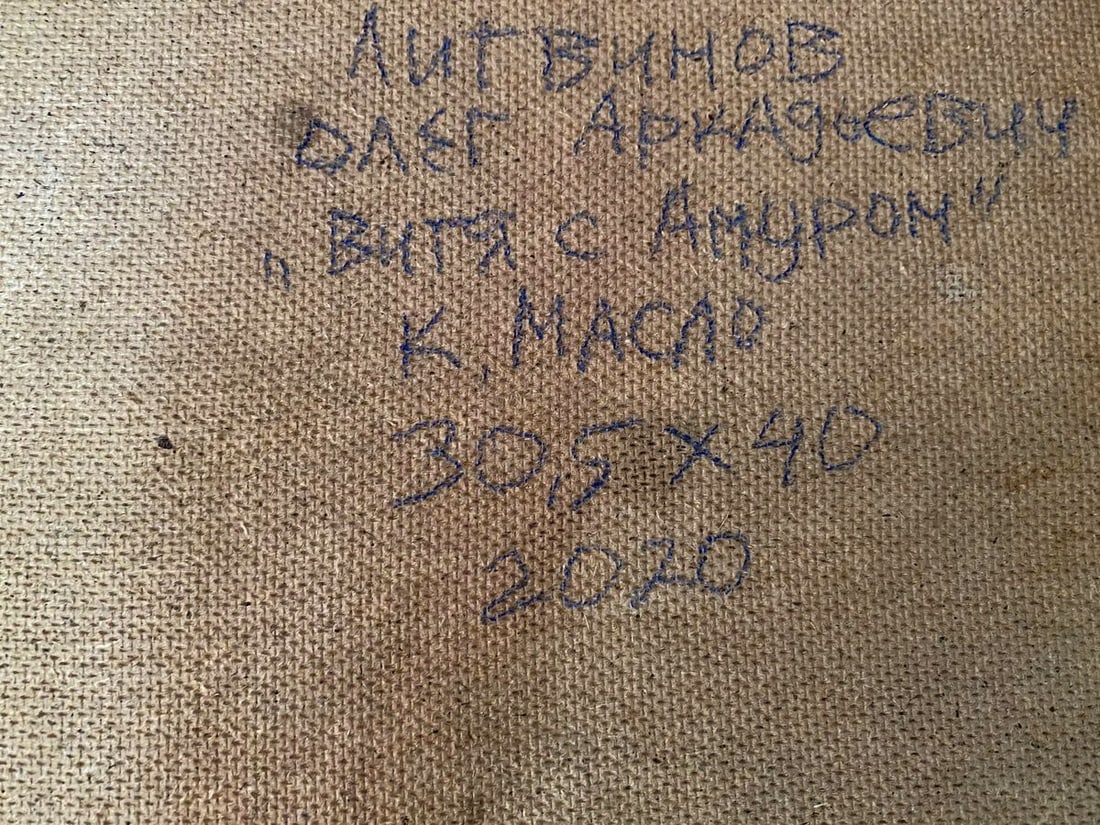 Литвинов
Олег Аркадьевич
„Витя с Амуром"
К, Масло
30,5 x 40
2020